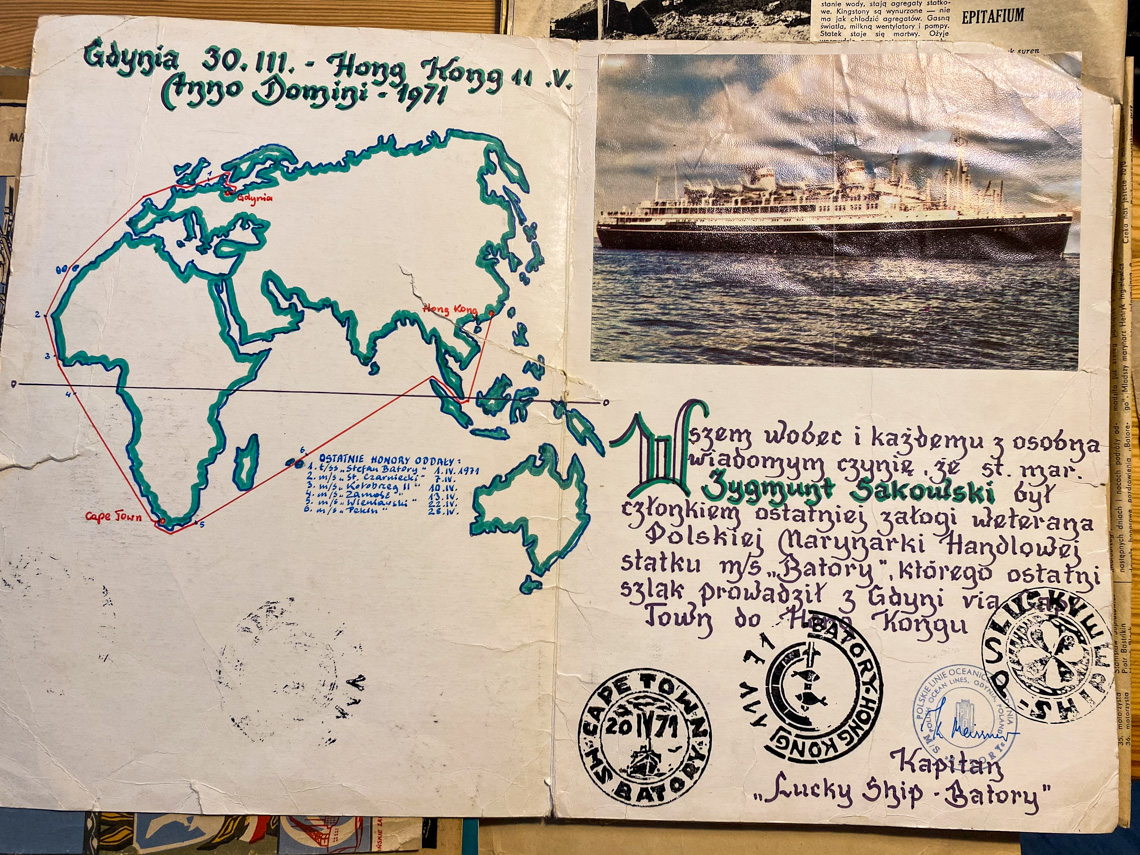 Gdynia 30.III. - Hong Kong 11.V.
Anno Domini - 1971
Gdynia
Hong Kong
Cape Town
1
2
3
4
5
6
0
0
OSTATNIE HONORY ODDAŁY:
1. t/ss „Stefan Batory” 1.IV.1971
2. m/s „St. Czarniecki” 7.IV.
3. m/s „Kołobrzeg II” 10.IV.
4. m/s „Zamość” 13.IV.
5. m/s „Wieniawski” 22.IV.
6. m/s „Pekin” 28.IV.
Wszem wobec i każdemu z osobna
wiadomym czynię, że st. mar.
Zygmunt Sakowski był
członkiem ostatniej załogi weterana
Polskiej Marynarki Handlowej
statku m/s „Batory”, którego ostatni
szlak prowadził z Gdyni via Cape
Town do Hong Kongu
CAPE TOWN
20 IV 71
MS BATORY
11 V 71
BATORY-HONGKONG
POLSKIE LINIE OCEANICZNE GDYNIA
POLISH OCEAN LINES, GDYNIA POLAND
Kapitan
„Lucky Ship - Batory”
stanie wody, stają agregaty statko-
we. Kingstony są wynurzone — nie
ma jak chłodzić agregatów. Gasną
światła, milkną wentylatory i pompy.
Statek staje się martwy. Ożyje
EPITAFIUM